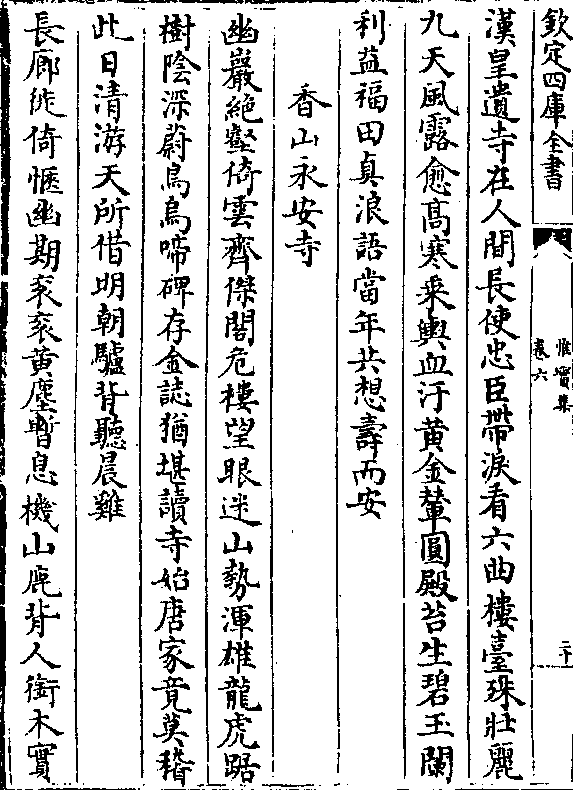 欽定四庫全書
惟實集
卷六
二十
漢皇遺寺在人間長使忠臣帶淚看六曲樓臺殊壯麗
九天風露愈髙寒乗輿血汗黄金輦圓殿苔生碧玉闌
利益福田真浪語當年共想夀而安
香山永安寺
幽巖絶壑倚雲齊傑閣危樓望眼迷山勢渾雄龍虎踞
樹隂深蔚鳥烏啼碑存金誌猶堪讀寺始唐家竟莫稽
此日清游天所借明朝驢背聽晨雞
長廊徙倚愜幽期衮衮黄塵暫息機山鹿背人銜木實